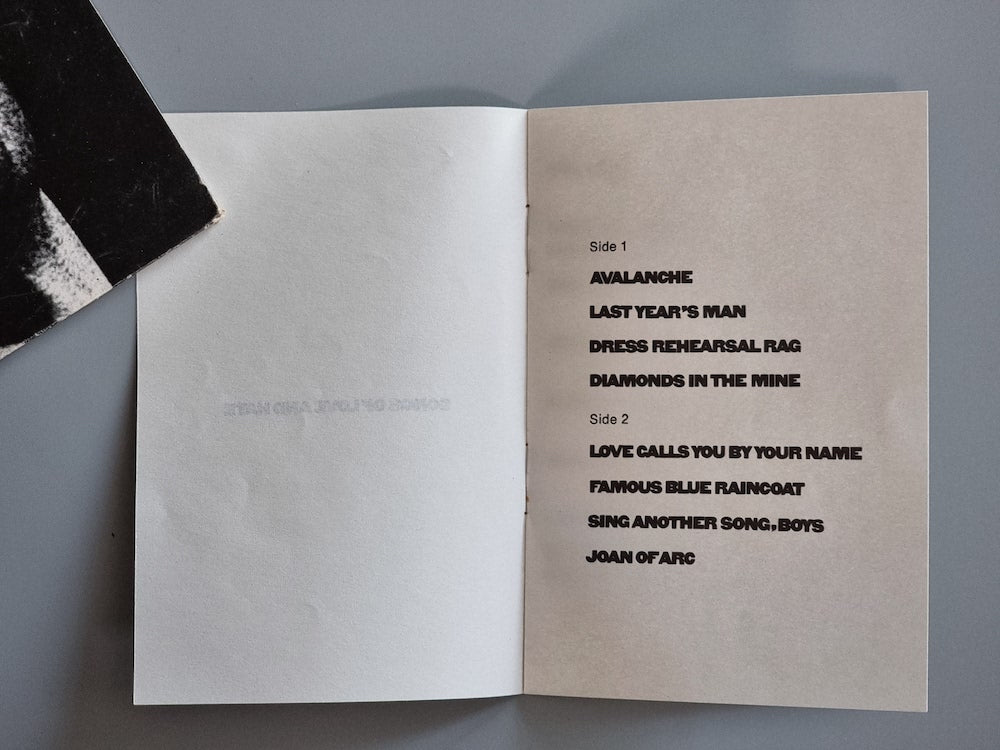 SONGS OF LOVE AND HATE
Side 1
AVALANCHE
LAST YEAR'S MAN
DRESS REHEARSAL RAG
DIAMONDS IN THE MINE
Side 2
LOVE CALLS YOU BY YOUR NAME
FAMOUS BLUE RAINCOAT
SING ANOTHER SONG, BOYS
JOAN OF ARC